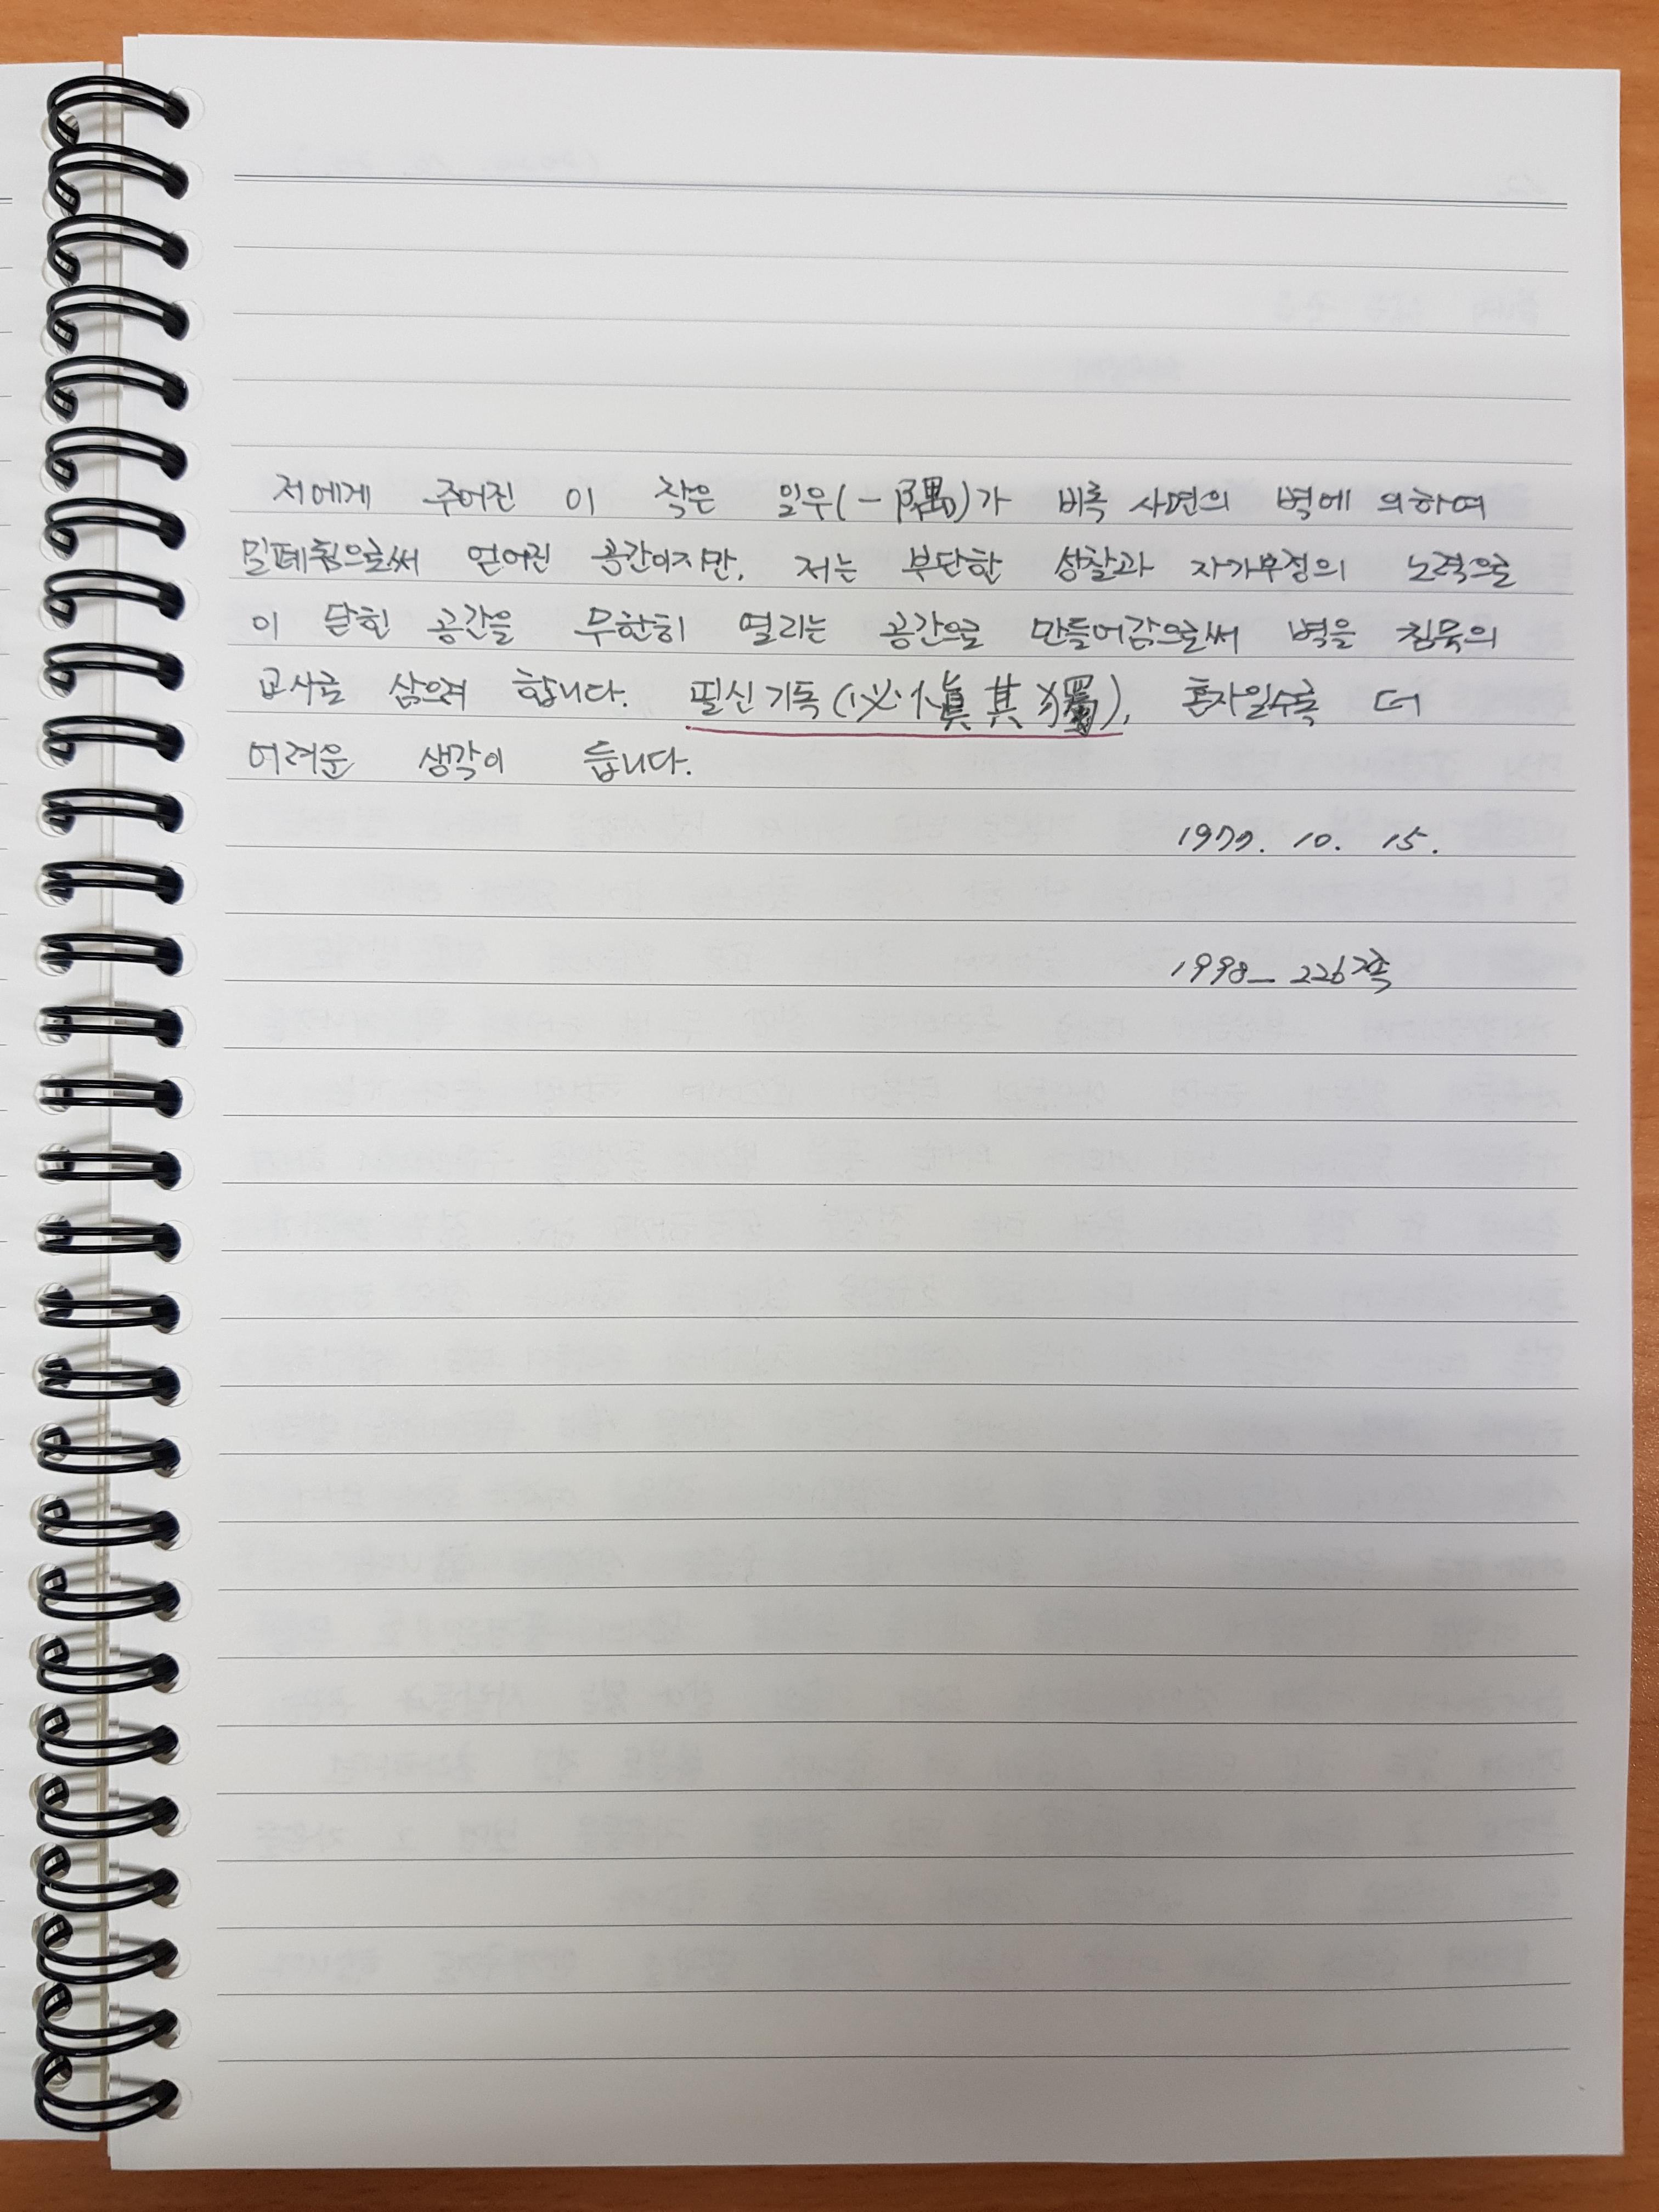 저에게 주어진 이 작은 일우(一隅)가 비록 사면의 벽에 의하여
밀폐됨으로써 얻어진 공간이지만, 저는 부단한 성찰과 자기부정의 노력으로
이 닫힌 공간을 무한히 열리는 공간으로 만들어감으로써 벽을 침묵의
교사로 삼으려 합니다. 필신기독(必愼其獨), 혼자일수록 더
어려운 생각이 듭니다.
1977. 10. 15.
1998_ 226쪽